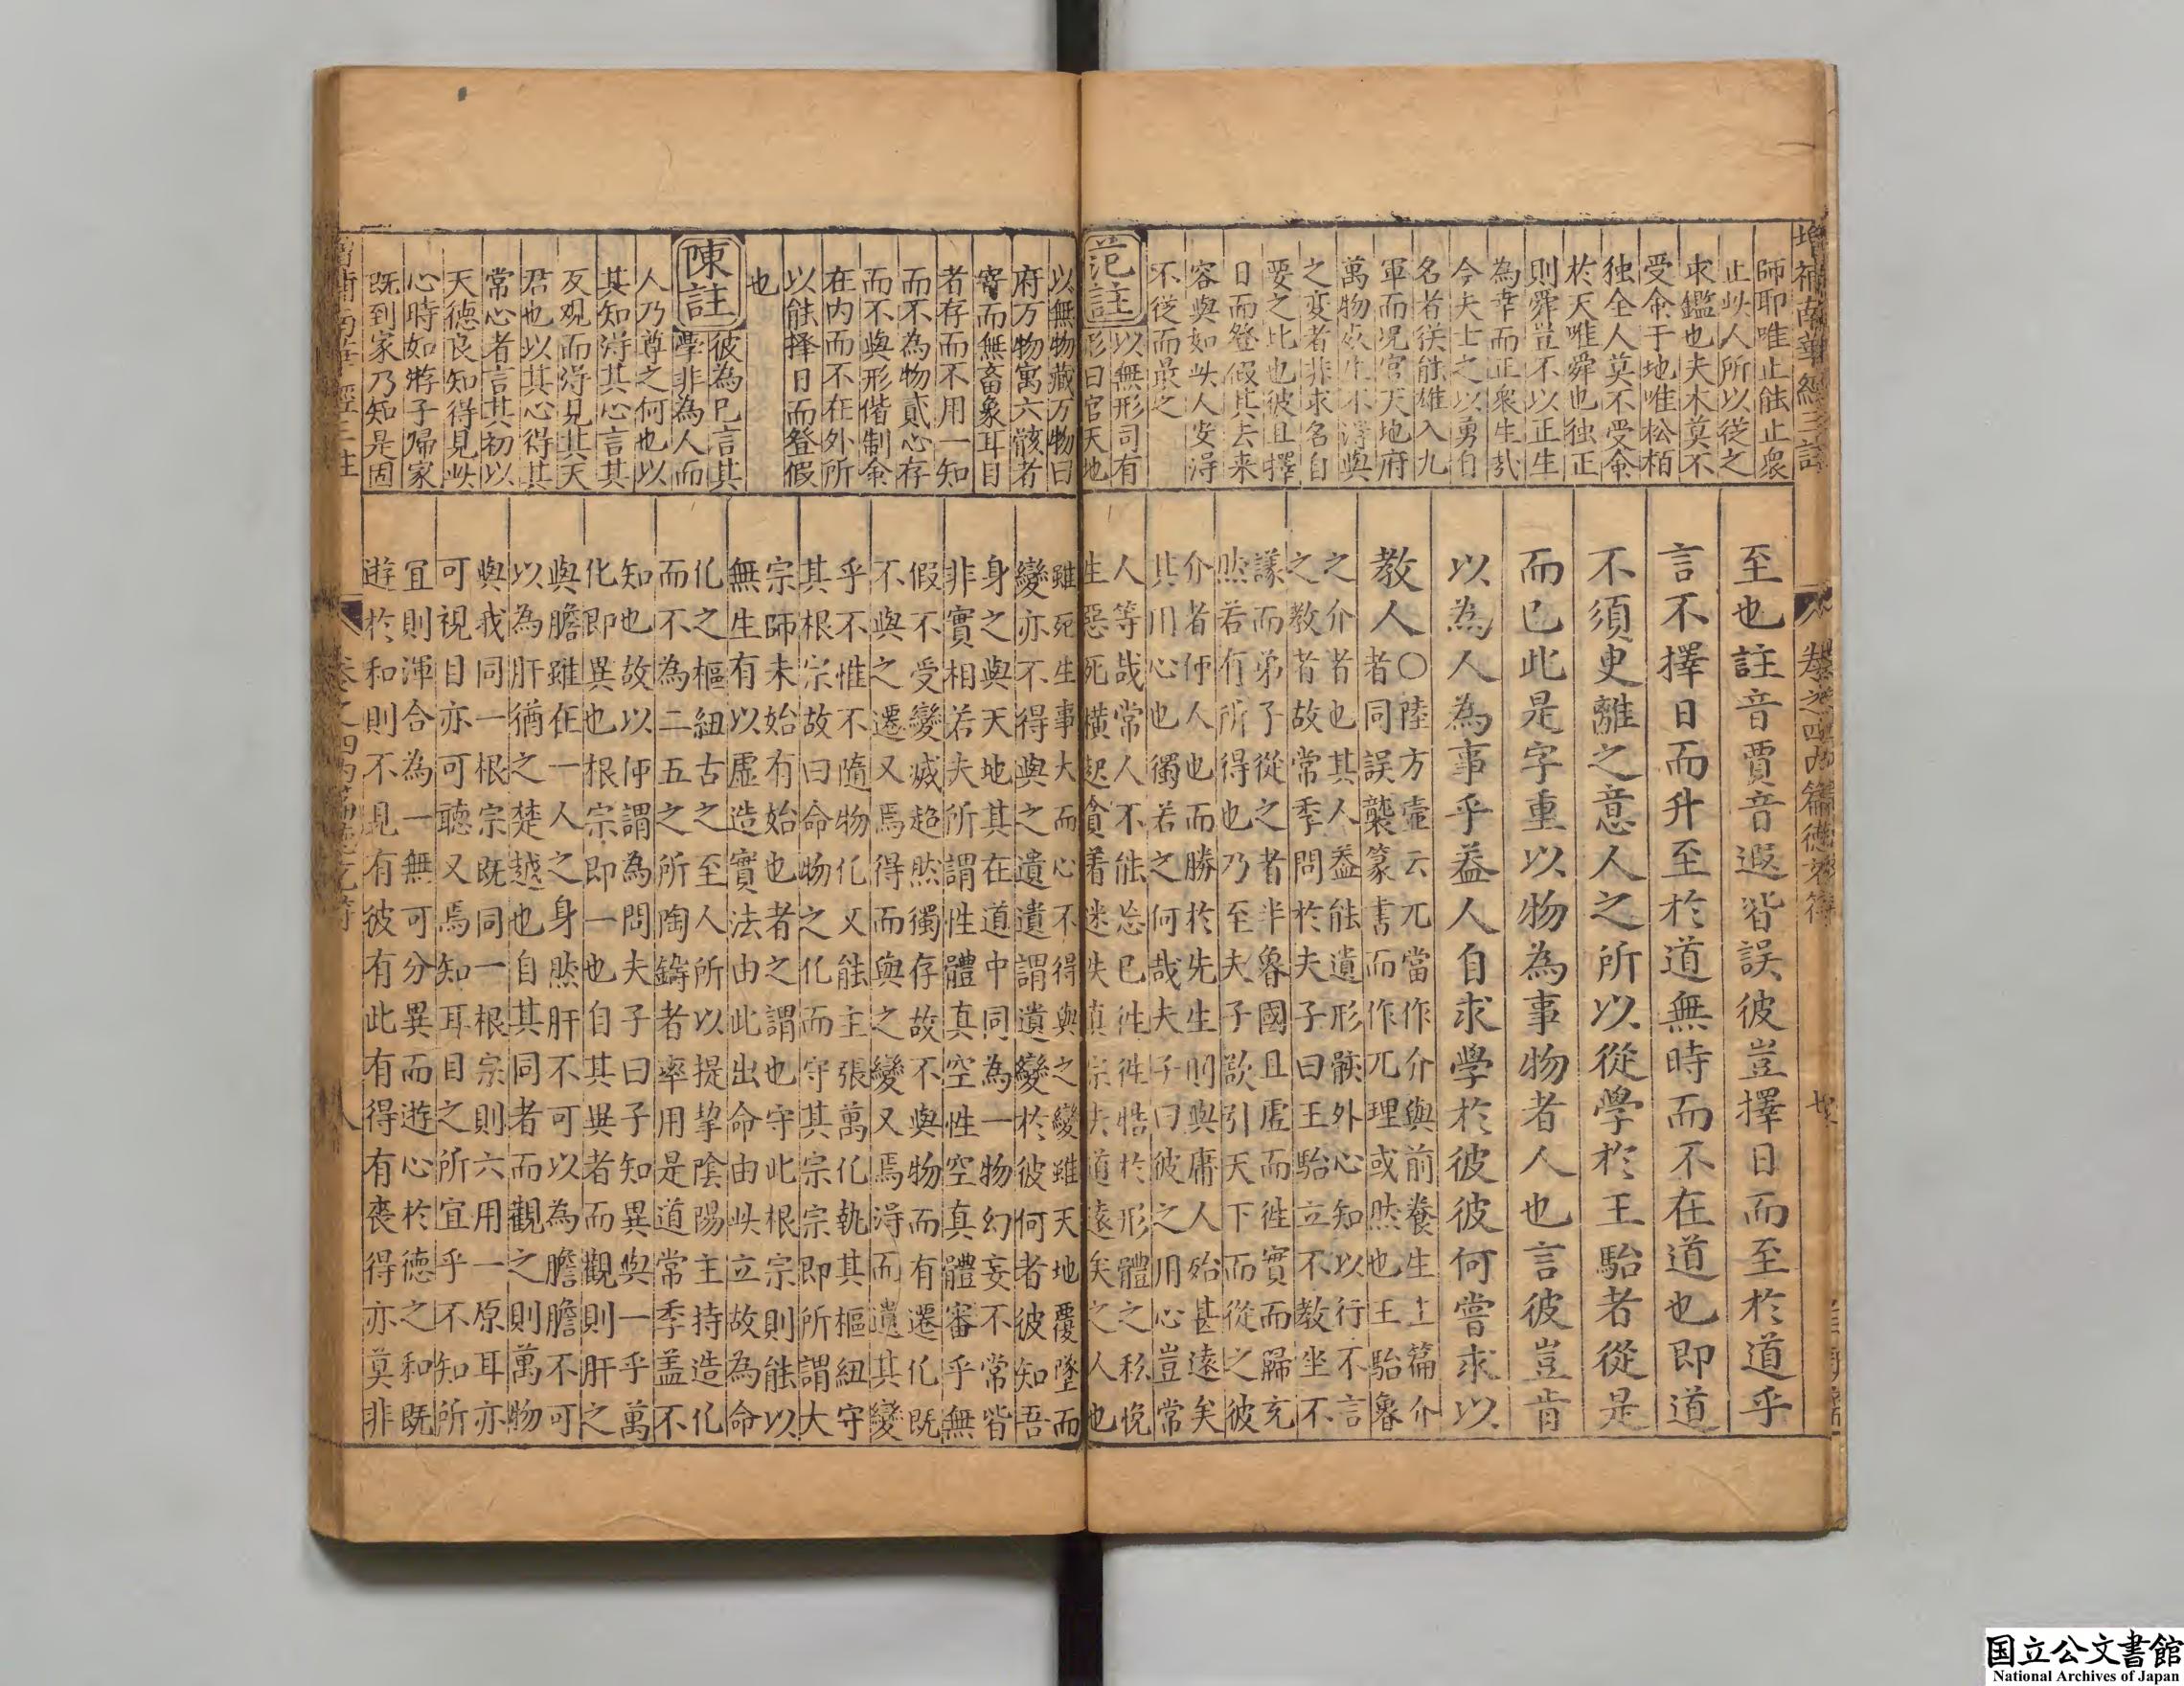 增補南華經三註
師耶唯止能止眾
止此人所以従之
求鑑也夫木莫不
受命于地唯松柏
独全人莫不受命
於天唯舜也独正
則舜豈不以正生
為幸而正衆生哉
今夫士之以勇自
名者従能雄入九
軍而况官天地府
萬物死生不淂與
之変者非求名自
要之比也彼且擇
日而登假其去来
容與如此人安淂
不従而最之
范註
以無形司有
形曰官天地
卷之四內篇德充符
至也註音賈音遐皆誤彼豈擇日而至於道乎
言不擇日而升至於道無時而不在道也即道
不須更離之意人之所以從學於王駘者從是
而已此是字重以物為事物者人也言彼豈肯
以為人為事乎益人自求學於彼彼何嘗求以
教人〇陸方壺云兀當作介與前養生主篇介
者同誤襲篆書而作兀理或然也王駘魯
之介者也其人益能遺形骸外心知以行不言
之教者故常季問於夫子曰王駘立不教坐不
議而弟子從之者半魯國且虛而徃實而歸充
然若有所得也乃至夫子欲引天下而從之彼
介者何人也而勝於先生則與庸人殆甚遠矣
其用心也獨若之何哉夫子曰彼之用心豈常
人等哉常人不能忘已徃徃牿於形體之移悅
生惡死橫起貪着迷失真宗失道遠矣之人也
以無物藏万物曰
府万物寓六骸者
寄而無畜象耳目
者存而不用一知
而不為物貳心存
而不與形偕制命
在内而不在外所
以能擇日而登假
也
陳註
彼為已言其
學非為人而
人乃尊之何也以
其知淂其心言其
反观而淂見其天
君也以其心得其
常心者言其初以
天德良知得見此
心時如游子歸家
既到家乃知是固
雖死生事大而心不得與之變雖天地覆墜而
變亦不得與之遺遺謂遺變於彼何者彼知吾
身之與天地其在道中同為一物幻妄不常皆
非實相若夫所謂性體真空性空真體審乎無
假不受變滅超然獨存故不與物而有遷化既
不與之遷又焉得而與之變又焉淂而遺其變
乎不惟不隨物化又能主張萬化執其樞紐守
其根宗故曰命物之化而守其宗宗即所謂大
宗師未始有始也者之謂也守此根宗則能以
無生有以虛造實法由此出命由此立故為命
化之樞紐古之至人所以提挈陰陽主持造化
而不為二五之所陶鑄者率用是道常季盖不
知也故以何謂為問夫子曰子知異與一乎萬
化即異也根宗即一也自其異者而觀則肝之
與膽雖在一人之身然肝不可以為膽膽不可
以為肝猶之楚越也自其同者而觀之則萬物
與我同一根宗既同一根宗則六用一原耳亦
可視目亦可聽又焉知耳目之所宜乎不知所
宜則渾合為一無可分異而遊心於德之和既
遊於和則不見有彼有此有得有喪得亦莫非
国立公文書館
National Archives of Japan